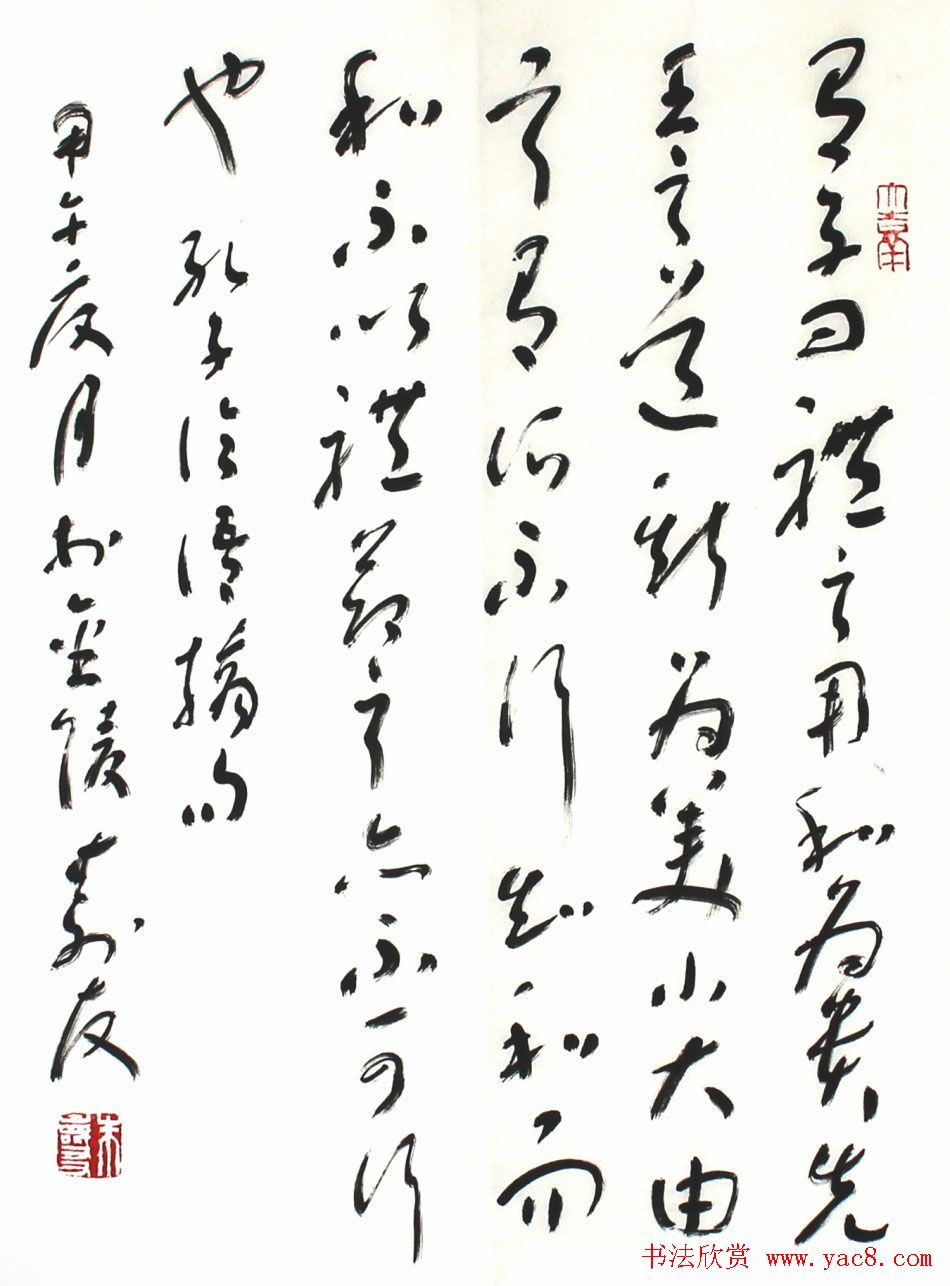 有子曰禮之用和為貴先
王之道斯為美小大由
之有所不行知和而
和不以禮節之亦不可行
也 孔子論語摘句
甲午夏月於金陵壽友
朱壽友
书法欣赏 www.yac8.com